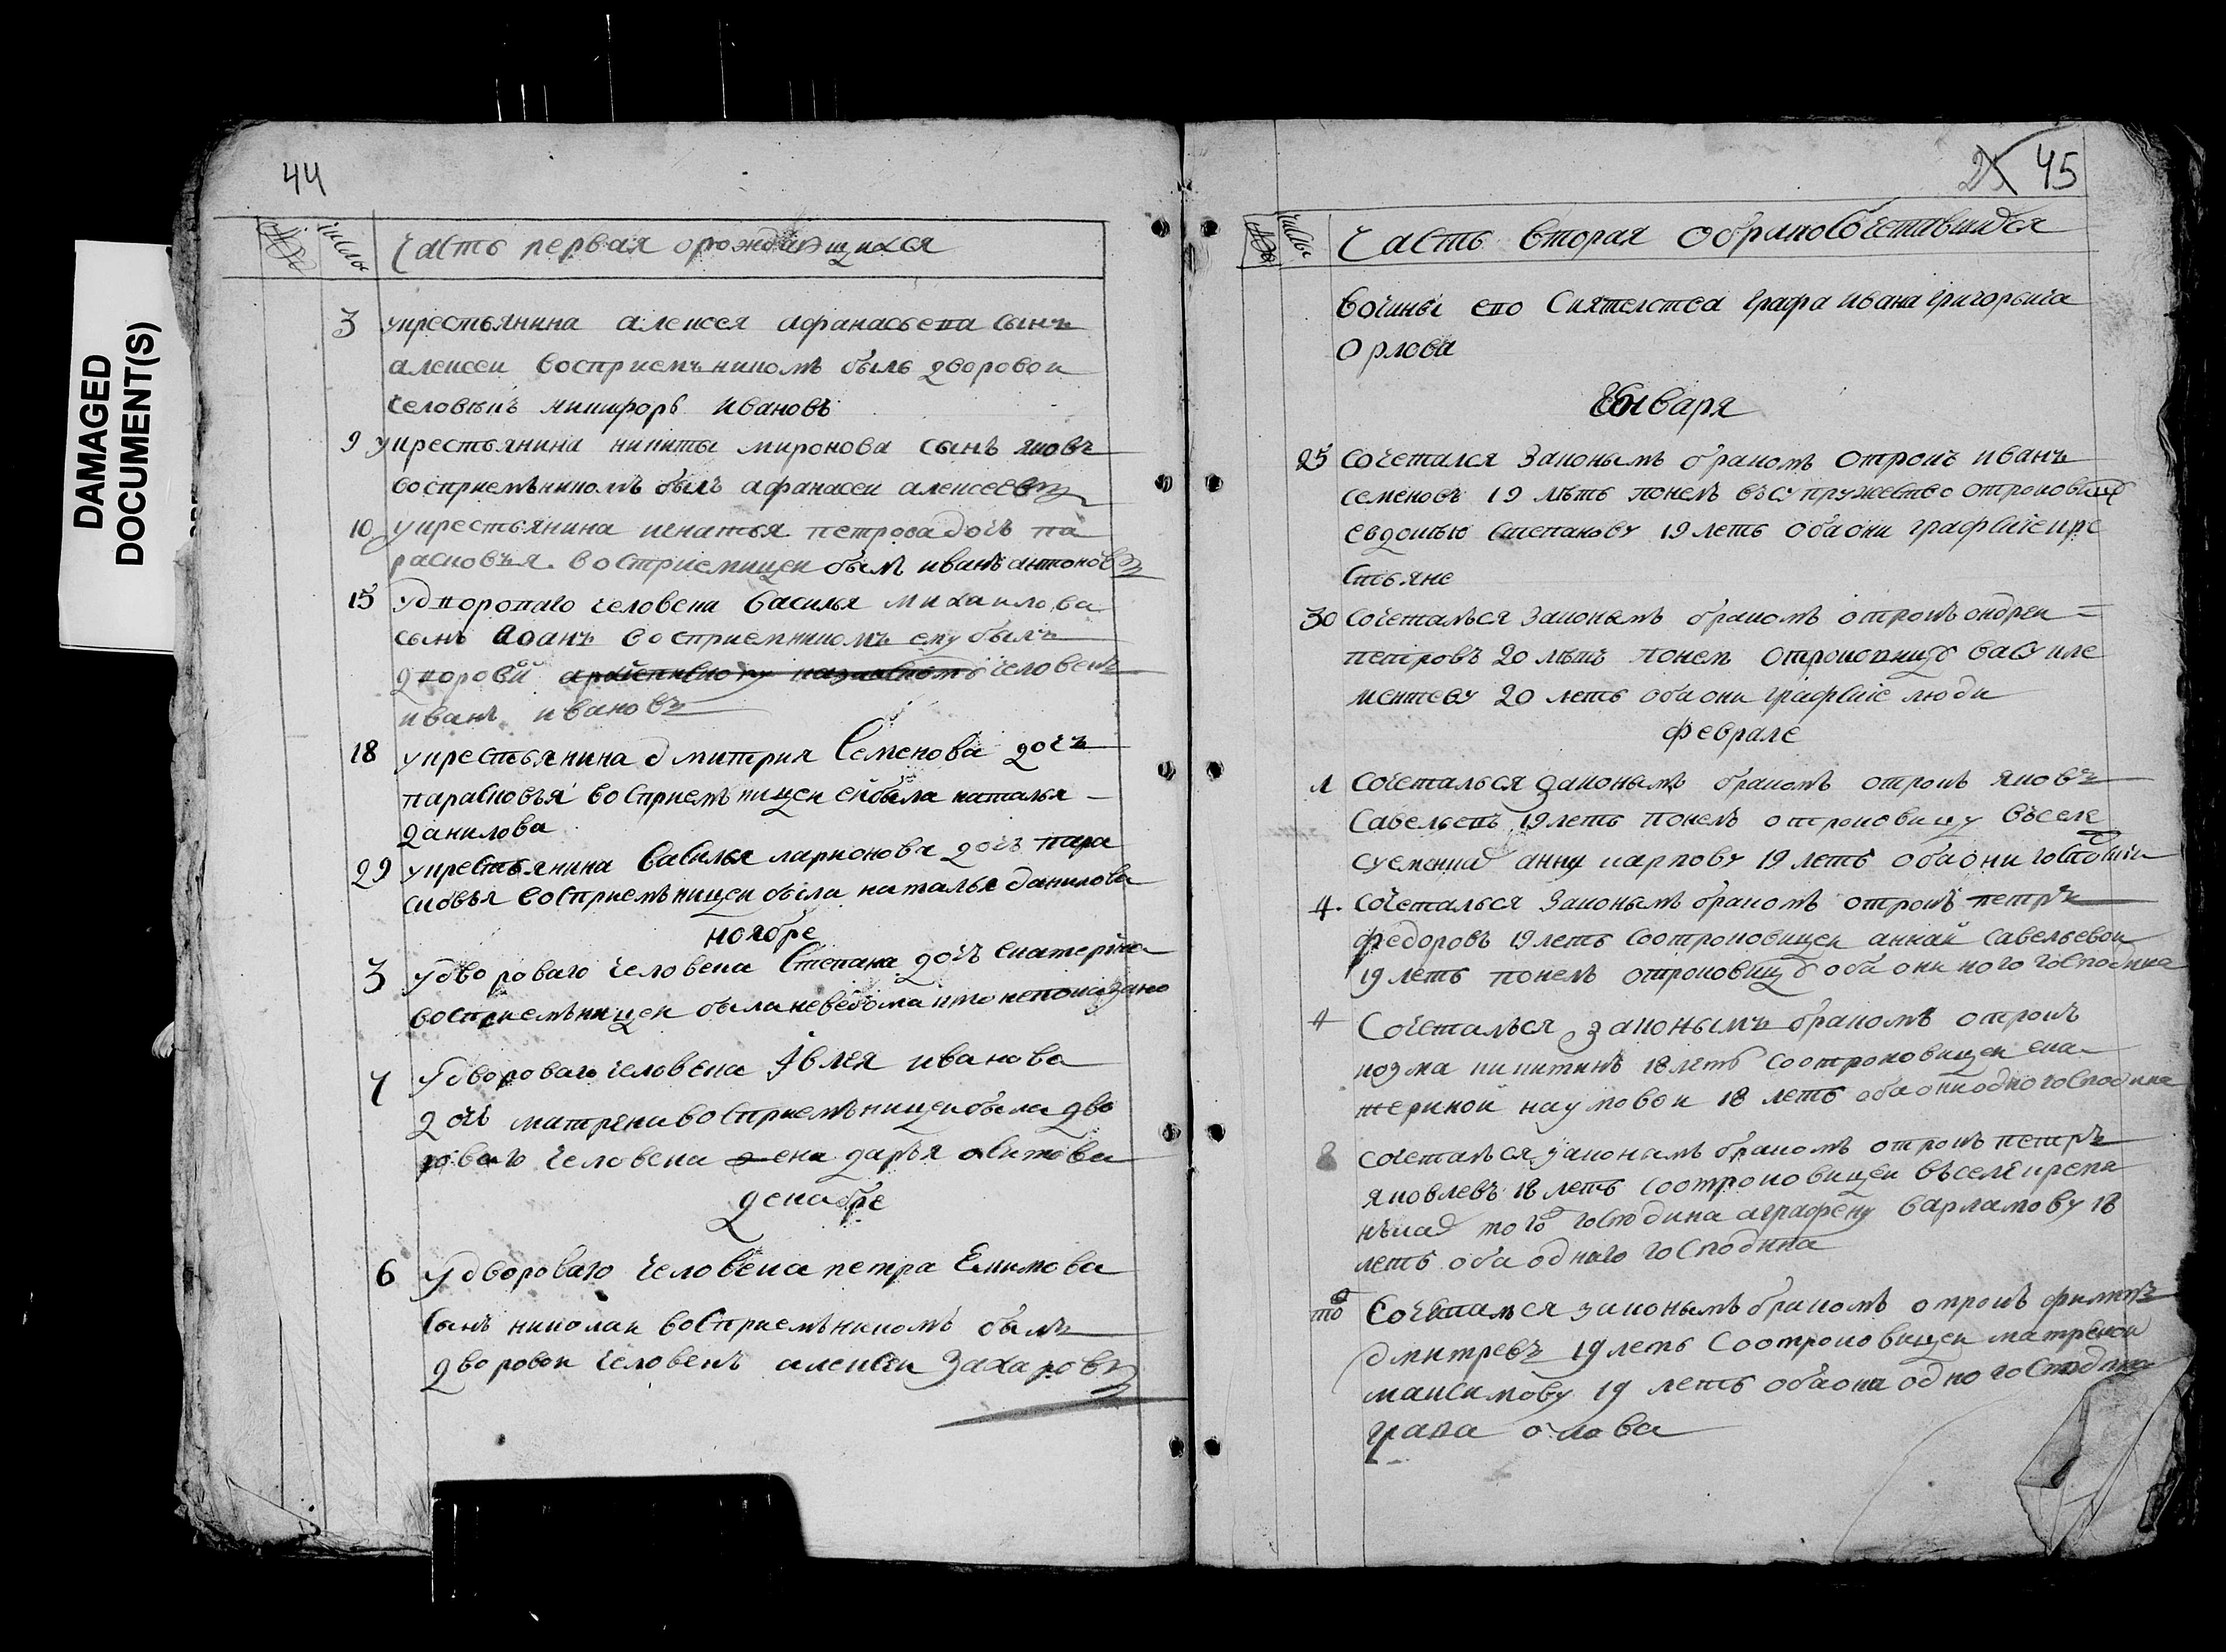 DAMAGED
DOCUMENT(S)
44
№
число
Часть первая орождающихся
3 укрестьянина алексея афанасьева сынъ
алексеи восприемъникомъ былъ дворовои
человѣкъ никифоръ Ивановъ
9 укрестьянина никиты миронова сынъ яковъ
восприемъникомъ былъ афанасеи алексеевъ
10 укрестьянина игнатья петрова дочь па
расковья восприемницеи былъ иванъ антоновъ
15 удворонаго человека Василья михаилова
сынъ Иоанъ восприемникомъ ему былъ
дворовой человекъ
иванъ ивановъ
18 укрестьянина дмитрия Семенова дочь
парасковъя восприемъницеи ей была наталья
данилова
29 укрестьянина Василья ларионова дочь пара
сковъя восприемъницеи была наталья данилова
ноябре
3 удвороваго человека Степана дочъ екатерина
восприемъницеи была неведома кто непоказано
7 удвороваго человека Авлея иванова
дочь матрена восприемъницеи была дво
роваго человека жена даръя
декабре
6 удвороваго человека петра Екимова
сынъ николаи восприемъникомъ былъ
дворовои человекъ алексеи Захаровъ
45
№
число
Часть вторая обракосочетавшихся
вочины его Сиятелства графа ивана григорьича
Орлова
Генваря
25 сочетался Законымъ бракомъ отрокъ иванъ
семеновъ 19 лѣтъ понелъ въсупружество отроковицу
евдокию степанову 19 летъ оба они графские кре
стьяне
30 сочетался Законымъ бракомъ отрокъ андреи
петровъ 20 лѣтъ понелъ отроковицу васу кле
ментеву 20 летъ оба они графские люди
феврале
1 сочетался Законымъ бракомъ отрокъ яковъ
Савельевъ 19 летъ понелъ отроковицу въселе
анну карпову 19 летъ оба они
4. сочетался Законымъ бракомъ отрокъ петръ
федоровъ 19 летъ соотроковицеи аннай савельевои
19 летъ понелъ отроковицу оба они господина
4 Сочетался законымъ бракомъ отрокъ
козма никитинъ 18 летъ соотроковицеи ека
териной наумовои 18 летъ оба они одного господина
8 сочетался законымъ бракомъ отрокъ петръ
яковлевъ 18 летъ соотроковицеи въселе
того господина аграфену варламову 18
летъ оба однаго господина
то Сочетался законымъ бракомъ отрокъ филипъ
дмитревъ 19 летъ Соотроковицеи матреной
максимову 19 летъ оба они одного господина